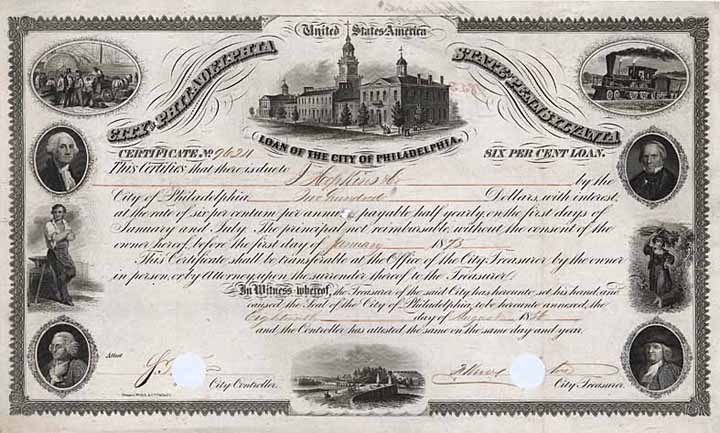 United States America
CITY OF PHILADELPHIA STATE OF PENNSYLVANIA
LOAN OF THE CITY OF PHILADELPHIA.
CERTIFICATE No. 9624 SIX PER CENT LOAN.
This Certifies that there is due to J Hopkins by the
City of Philadelphia Two hundred Dollars, with interest,
at the rate of six per centum per annum, payable half yearly, on the first days of
January and July. The principal not reimbursable, without the consent of the
owner hereof, before the first day of January 1893
This Certificate shall be transferable at the Office of the City Treasurer by the owner
in person, or by Attorney, upon the surrender thereof to the Treasurer.
In Witness whereof, the Treasurer of the said City, has hereunto set his hand, and
caused the Seal of the City of Philadelphia, to be hereunto annexed, the
day of August 18
and the Controller has attested the same on the same day and year.
Attest
City Controller. City Treasurer.